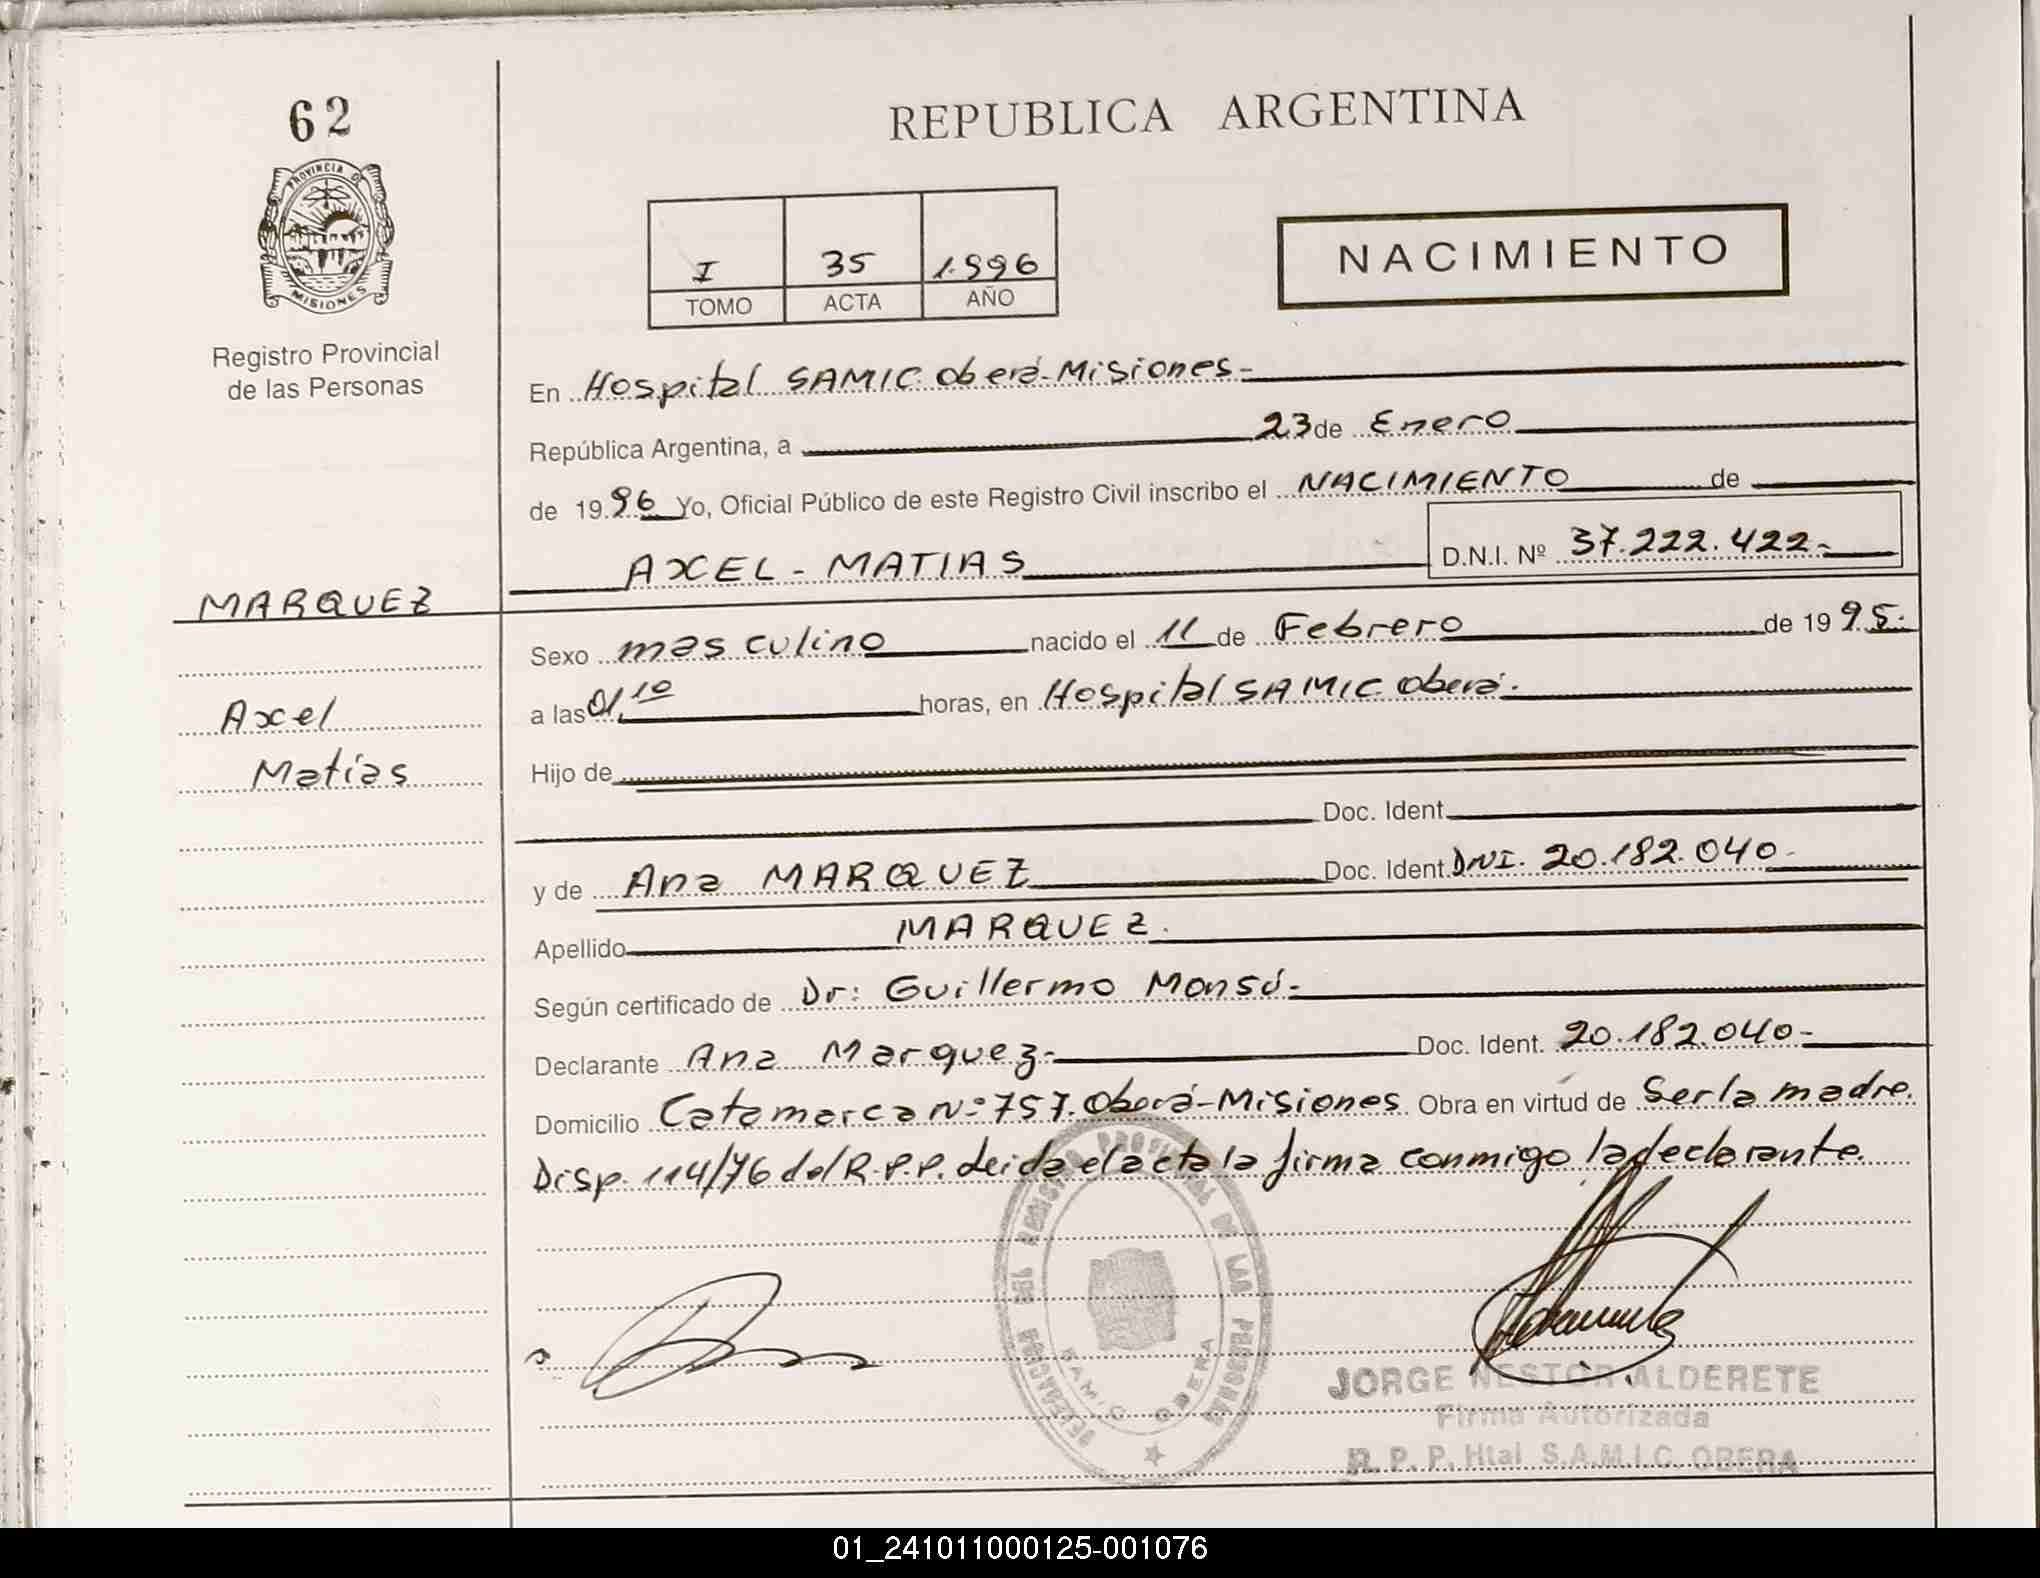 62
REPUBLICA ARGENTINA
PROVINCIA DE
MISIONES
Registro Provincial
de las Personas
I 35 1.996
TOMO ACTA AÑO
NACIMIENTO
En Hospital SAMIC. Oberá-Misiones-
República Argentina, a 23 de Enero
de 1996 Yo, Oficial Público de este Registro Civil inscribo el NACIMIENTO de
AXEL - MATIAS D.N.I. Nº 37.222.422-
MARQUEZ
Axel
Matías
Sexo masculino nacido el 11 de Febrero de 1995.
a las 01,10 horas, en Hospital SAMIC Oberá.
Hijo de
Doc. Ident.
y de Ana MARQUEZ Doc. Ident. DNI. 20.182.040-
Apellido MARQUEZ.
Según certificado de Dr: Guillermo Monsú-
Declarante Ana Marquez- Doc. Ident. 20.182.040-
Domicilio Catamarca Nº 757. Oberá-Misiones Obra en virtud de Ser la madre.
Disp. 114/76 del R.P.P. leida el acta la firma conmigo la declarante.
DELEGACION DEL REGISTRO PROVINCIAL DE LAS PERSONAS
S.A.M.I.C. OBERA
JORGE NESTOR ALDERETE
Firma Autorizada
R. P. P. Htal. S.A.M.I.C. OBERA
01_241011000125-001076